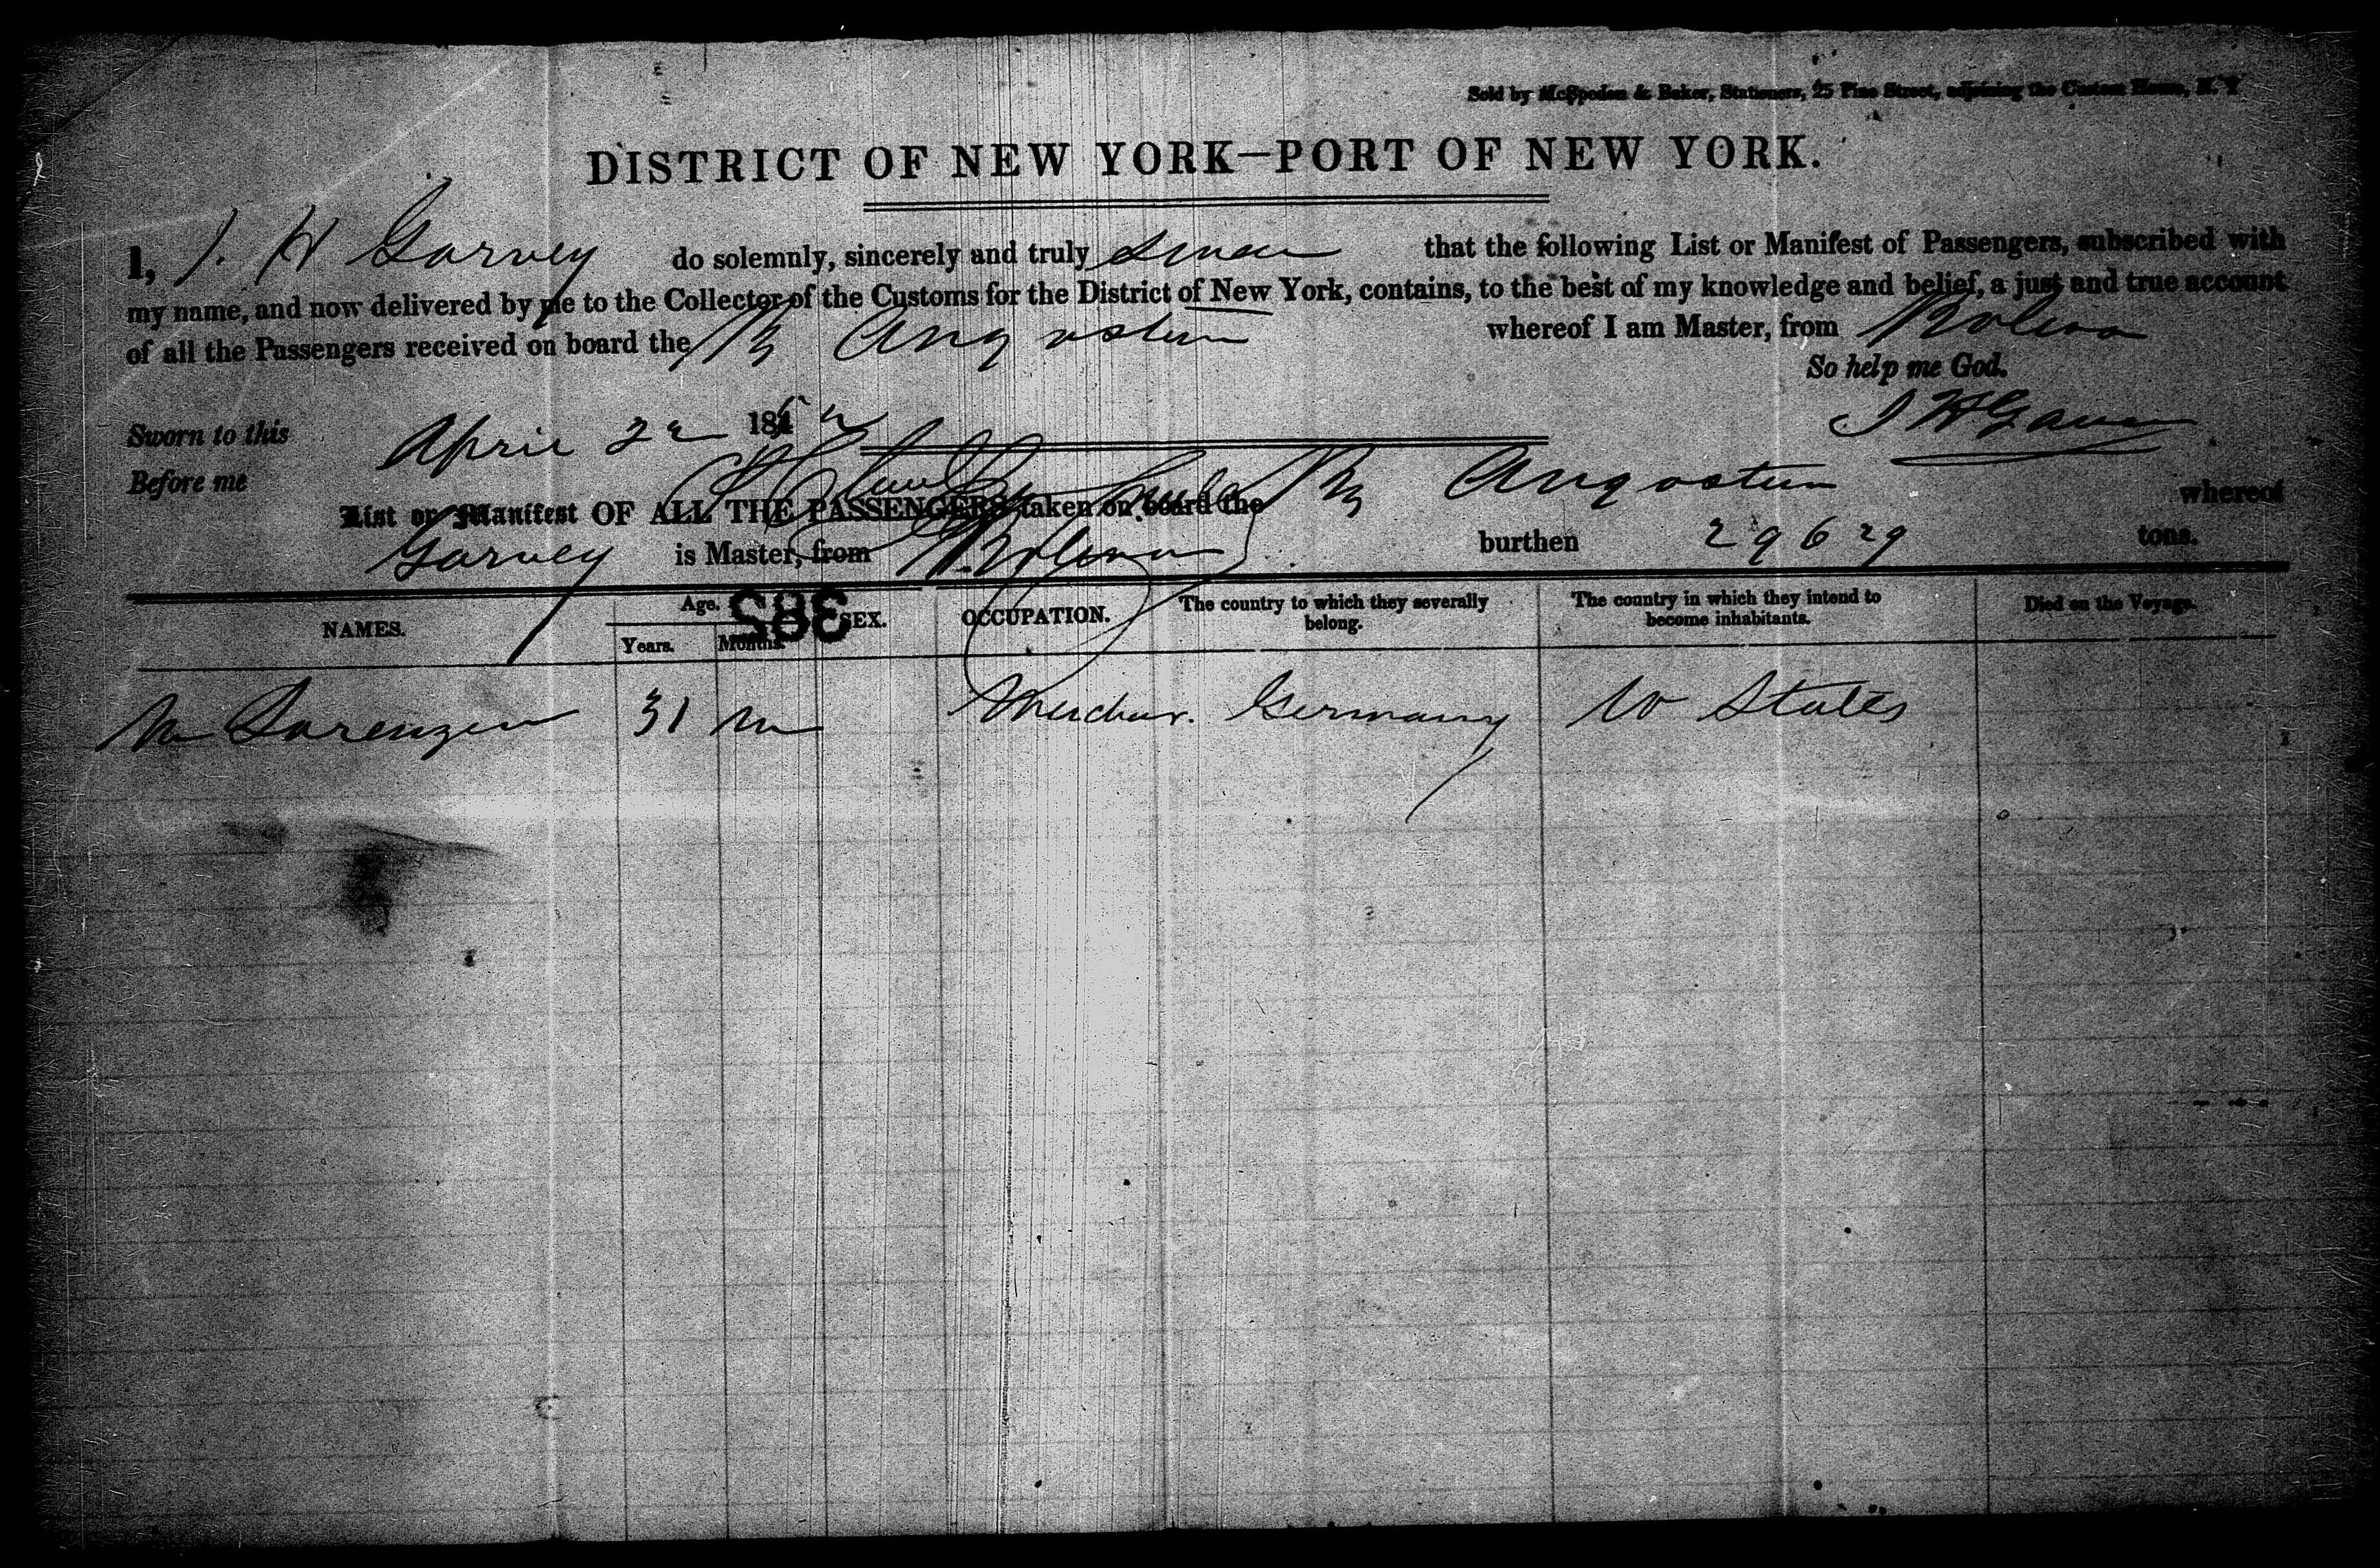 Sold by McSpedon & Baker, Stationers, 25 Pine Street, adjoining the Custom House, N. Y.
DISTRICT OF NEW YORK—PORT OF NEW YORK.
I, J. H Garvey do solemnly, sincerely and truly swear that the following List or Manifest of Passengers, subscribed with
my name, and now delivered by me to the Collector of the Customs for the District of New York, contains, to the best of my knowledge and belief, a just and true account
of all the Passengers received on board the Angostura whereof I am Master, from Bolivar
So help me God.
Sworn to this April 22 1852
J H Garvey
Before me
List or Manifest OF ALL THE PASSENGERS taken on board the Angostura whereof
Garvey is Master, from Bolivar burthen 296 29 tons.
NAMES. Age. Years. Months. SEX. OCCUPATION. The country to which they severally belong. The country in which they intend to become inhabitants. Died on the Voyage.
382
M Lorenzen 31 m Merchar. Germany U States